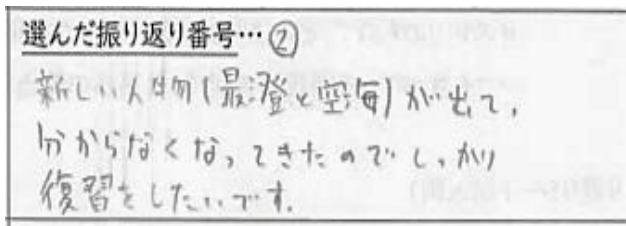 選んだ振り返り番号…②
新しい人物(最澄と空海)が出て、
分からなくなってきたのでしっかり
復習をしたいです。